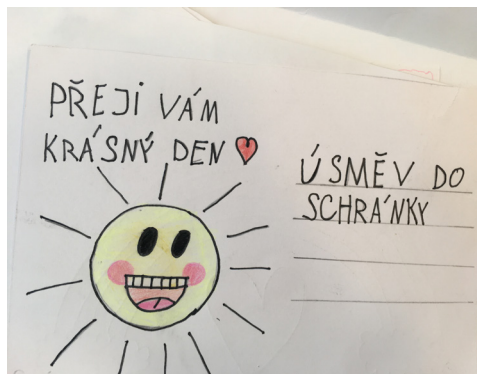 PŘEJI VÁM
KRÁSNÝ DEN
ÚSMĚV DO
SCHRÁNKY